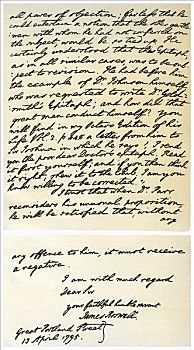 all power of rejection, far less that he
could entertain a notion that the other gentle
men with whom he had not conferred on
the subject, would be so tied up. He
certainly understood that the Epitaph
as in all similar cases was to be sub-
ject to revision. He had before him
the example of Dr. Johnson himself
who was requested to write Dr. Gold-
smith's Epitaph; and how did that
great man conduct himself? you
will find in my Octavo Edition of his
Life Vol. 2 p. a letter from him to
Sir Joshua in which he says "I send
you the poor dear Doctor's epitaph. Read
it first yourself, and if you then think
it right, shew it to the Club. I am you
know willing to be corrected."
I trust that when Dr. Parr
reconsiders his unusual proposition,
he will be satisfied that without
any
any offence to him, it must receive
a negative
I am with much regard
Dear Sir
your faithful humble servant
James Boswell.
Great Portland Street
13 April 1795.